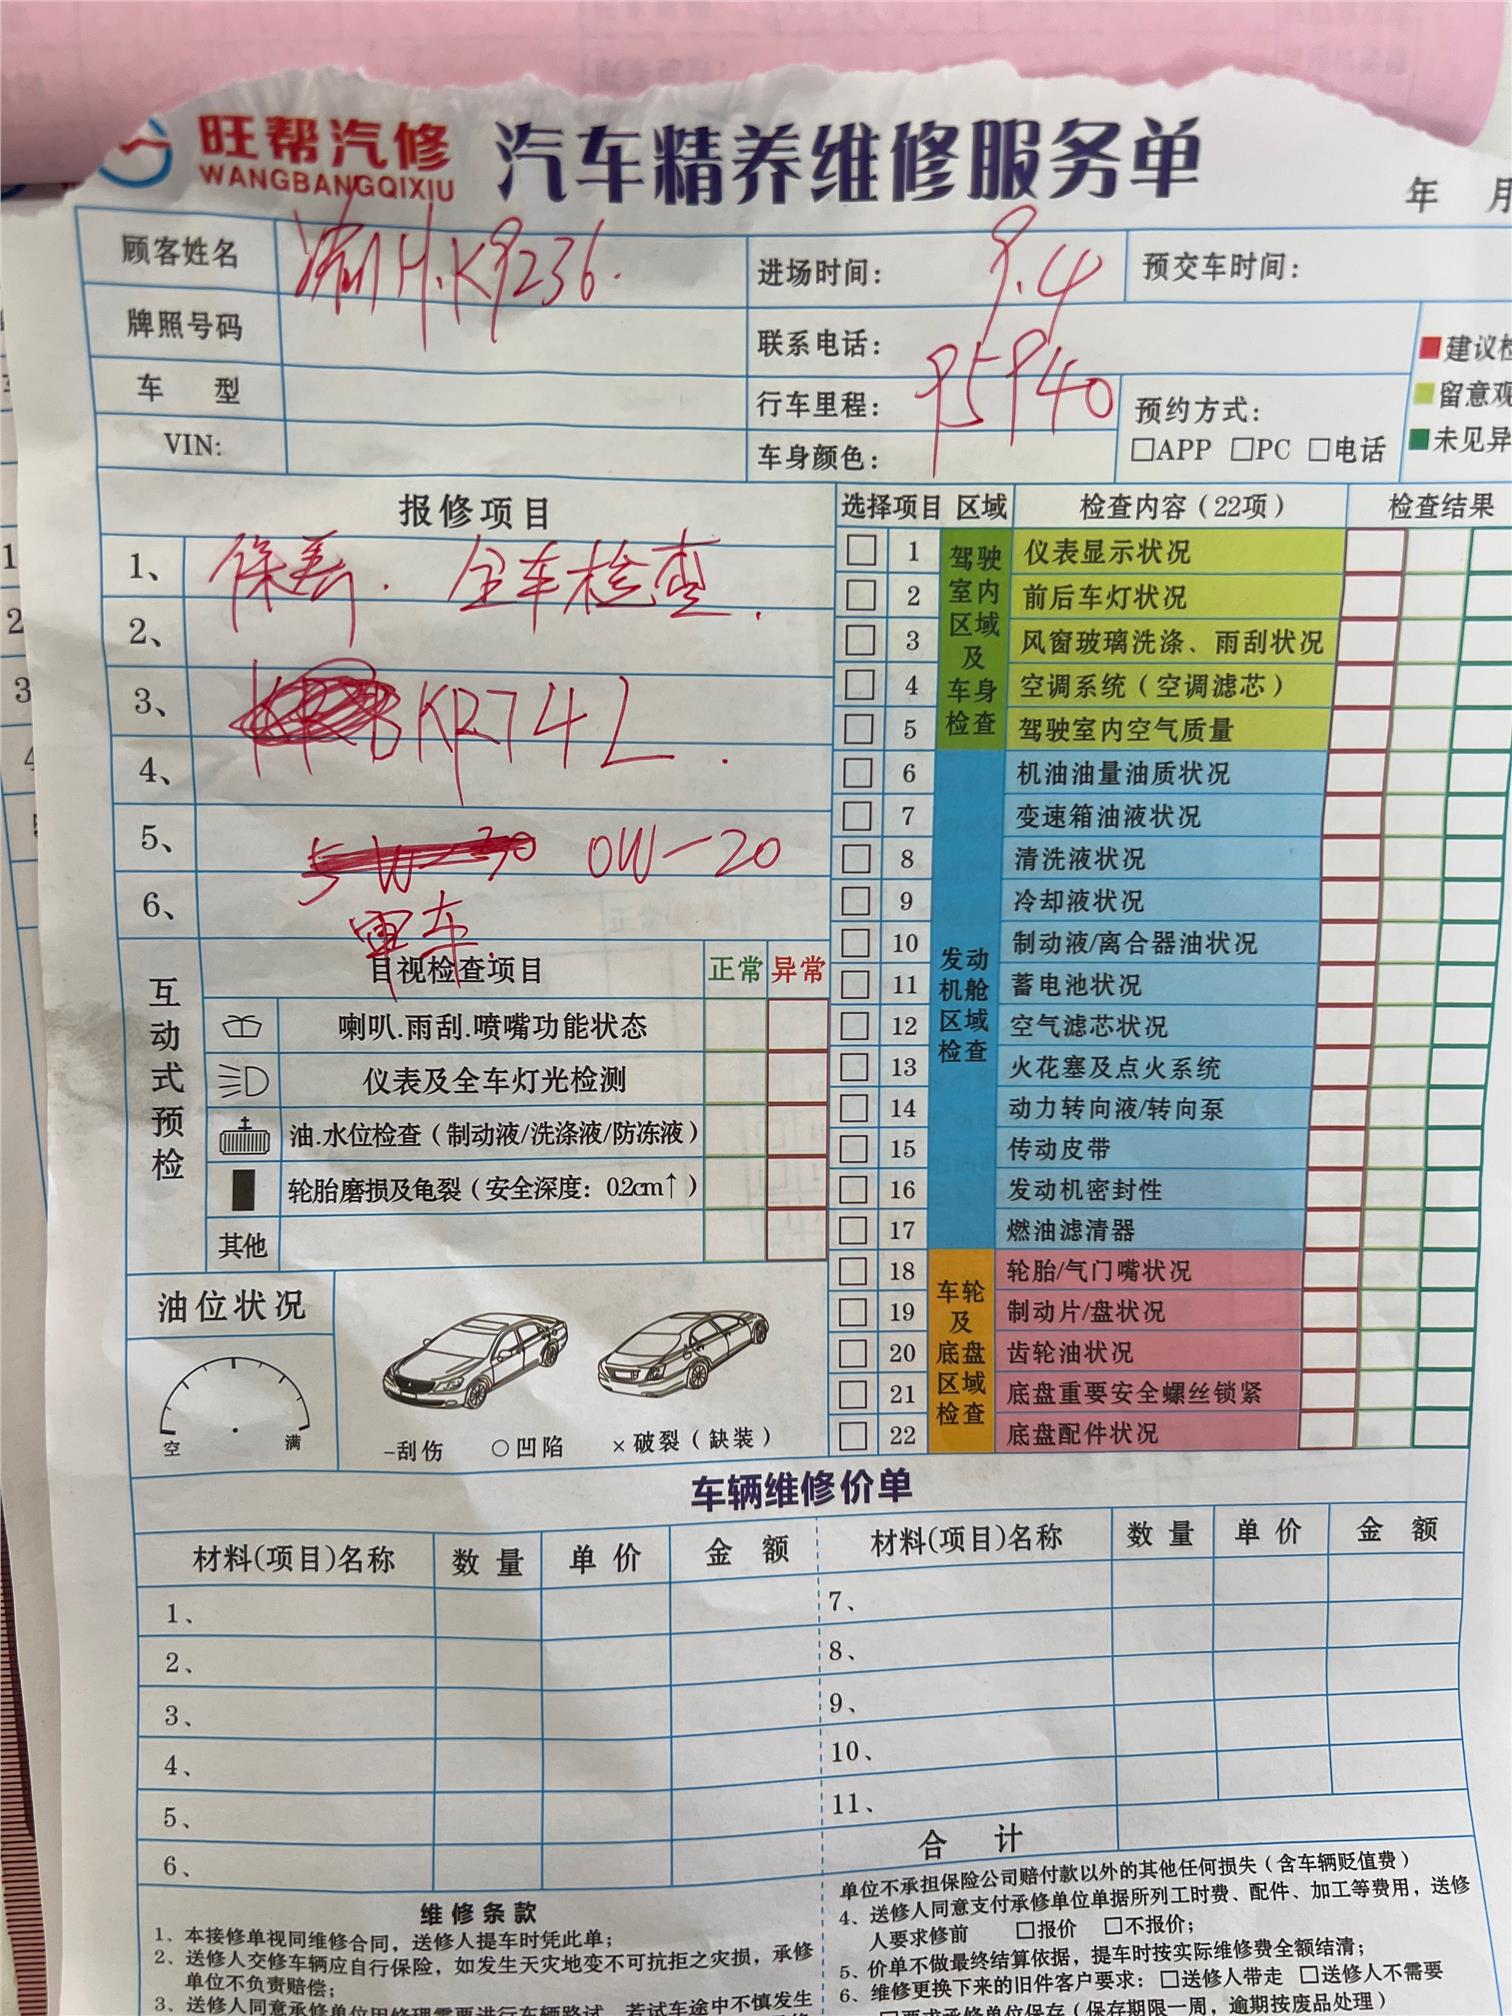 旺帮汽修
WANGBANGQIXIU
汽车精养维修服务单
年 月
顾客姓名 H·K9236.
进场时间: 9.4
预交车时间:
牌照号码
联系电话:
车 型
行车里程: 95940
预约方式:
□APP □PC □电话
VIN:
车身颜色:
建议检
留意观
未见异
报修项目
1、保养. 全车检查.
2、
3、KR74L.
4、
5、5W-30 0W-20
6、
选择项目 区域 检查内容(22项) 检查结果
驾驶室内区域及车身检查
1 仪表显示状况
2 前后车灯状况
3 风窗玻璃洗涤、雨刮状况
4 空调系统(空调滤芯)
5 驾驶室内空气质量
发动机舱区域检查
6 机油油量油质状况
7 变速箱油液状况
8 清洗液状况
9 冷却液状况
10 制动液/离合器油状况
11 蓄电池状况
12 空气滤芯状况
13 火花塞及点火系统
14 动力转向液/转向泵
15 传动皮带
16 发动机密封性
17 燃油滤清器
车轮及底盘区域检查
18 轮胎/气门嘴状况
19 制动片/盘状况
20 齿轮油状况
21 底盘重要安全螺丝锁紧
22 底盘配件状况
互动式预检
目视检查项目 正常 异常
喇叭.雨刮.喷嘴功能状态
仪表及全车灯光检测
油.水位检查(制动液/洗涤液/防冻液)
轮胎磨损及龟裂(安全深度: 0.2cm↑)
其他
油位状况
空 满
-刮伤 ○凹陷 ×破裂(缺装)
车辆维修价单
材料(项目)名称 数量 单价 金额 材料(项目)名称 数量 单价 金额
1、 7、
2、 8、
3、 9、
4、 10、
5、 11、
6、 合计
维修条款
1、本接修单视同维修合同,送修人提车时凭此单;
2、送修人交修车辆应自行保险,如发生天灾地变不可抗拒之灾损,承修
单位不负责赔偿;
3、送修人同意承修单位因修理需要进行车辆路试,若试车途中不慎发生
单位不承担保险公司赔付款以外的其他任何损失(含车辆贬值费)
4、送修人同意支付承修单位单据所列工时费、配件、加工等费用,送修
人要求修前 □报价 □不报价;
5、价单不做最终结算依据,提车时按实际维修费全额结清;
6、维修更换下来的旧件客户要求:□送修人带走 □送修人不需要
□要求承修单位保存(保存期限一周,逾期按废品处理)